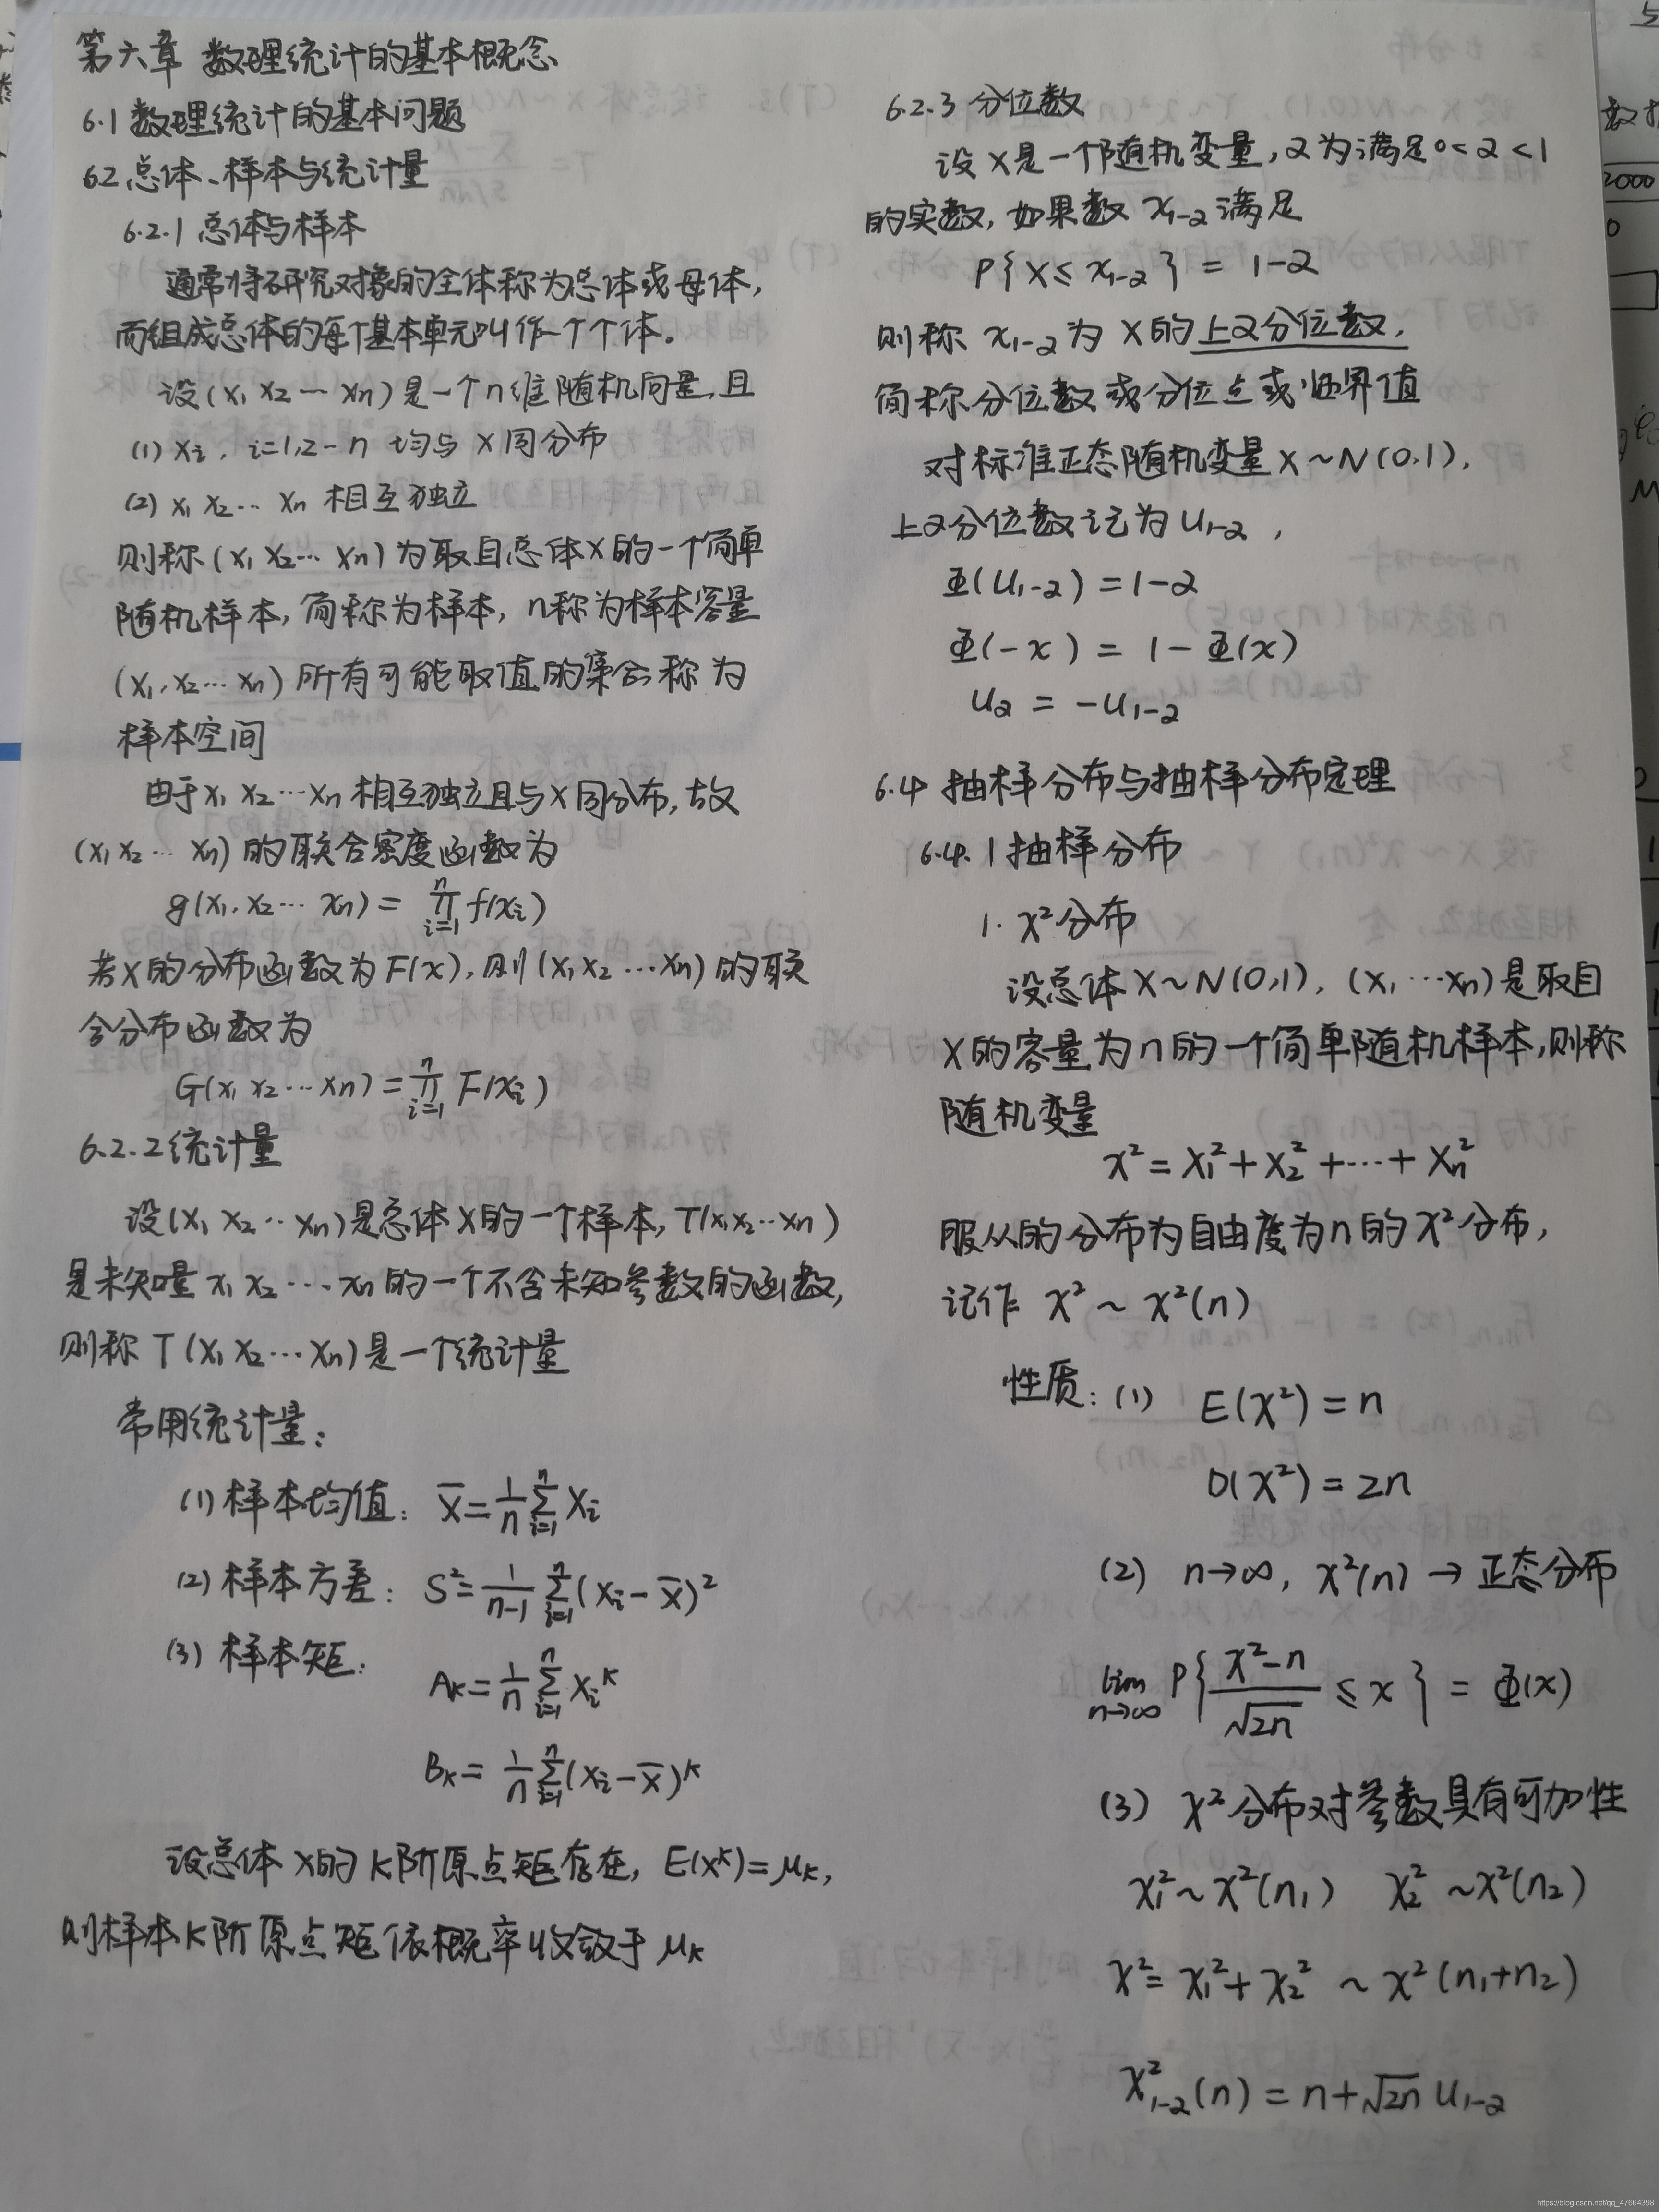 第六章 数理统计的基本概念
6.1 数理统计的基本问题
6.2 总体、样本与统计量
6.2.1 总体与样本
通常将研究对象的全体称为总体或母体,
而组成总体的每个基本单元叫作一个个体。
设(X₁ X₂ … Xn)是一个n维随机向量,且
(1) Xi, i=1,2…n 均与X同分布
(2) X₁ X₂… Xn 相互独立
则称(X₁ X₂… Xn)为取自总体X的一个简单
随机样本,简称为样本,n称为样本容量
(X₁,X₂…Xn)所有可能取值的集合称为
样本空间
由于X₁ X₂…Xn相互独立且与X同分布,故
(X₁X₂… Xn)的联合密度函数为
g(x₁,x₂… xn) = ∏ᵢ₌₁ⁿ f(xi)
若X的分布函数为F(x),则(X₁X₂…Xn)的联
合分布函数为
G(x₁ x₂…xn) = ∏ᵢ₌₁ⁿ F(xi)
6.2.2 统计量
设(X₁ X₂…Xn)是总体X的一个样本,T(x₁x₂…xn)
是未知量x₁ x₂…xn的一个不含未知参数的函数,
则称T(X₁ X₂…Xn)是一个统计量
常用统计量:
(1) 样本均值: X̄ = 1/n ∑ᵢ₌₁ⁿ Xi
(2) 样本方差: S² = 1/(n-1) ∑ᵢ₌₁ⁿ (Xi - X̄)²
(3) 样本矩:
Aₖ = 1/n ∑ᵢ₌₁ⁿ Xiᵏ
Bₖ = 1/n ∑ᵢ₌₁ⁿ (Xi - X̄)ᵏ
设总体X的K阶原点矩存在, E(Xᵏ) = μₖ,
则样本K阶原点矩依概率收敛于μₖ
6.2.3 分位数
设X是一个随机变量,α为满足0<α<1
的实数,如果数 x₁₋α 满足
P{X ≤ x₁₋α} = 1-α
则称 x₁₋α 为X的上α分位数,
简称分位数或分位点或临界值
对标准正态随机变量X~N(0,1),
上α分位数记为u₁₋α,
Φ(u₁₋α) = 1-α
Φ(-x) = 1-Φ(x)
uα = -u₁₋α
6.4 抽样分布与抽样分布定理
6.4.1 抽样分布
1. χ²分布
设总体X~N(0,1), (X₁ …Xn)是取自
X的容量为n的一个简单随机样本,则称
随机变量
χ² = X₁² + X₂² + … + Xn²
服从的分布为自由度为n的χ²分布,
记作 χ² ~ χ²(n)
性质: (1) E(χ²) = n
D(χ²) = 2n
(2) n→∞, χ²(n) → 正态分布
lim n→∞ P{(χ²-n)/√2n ≤ x} = Φ(x)
(3) χ²分布对参数具有可加性
χ₁² ~ χ²(n₁) χ₂² ~ χ²(n₂)
χ² = χ₁² + χ₂² ~ χ²(n₁+n₂)
χ²₁₋α(n) = n + √2n u₁₋α
2000
https://blog.csdn.net/qq_47664398